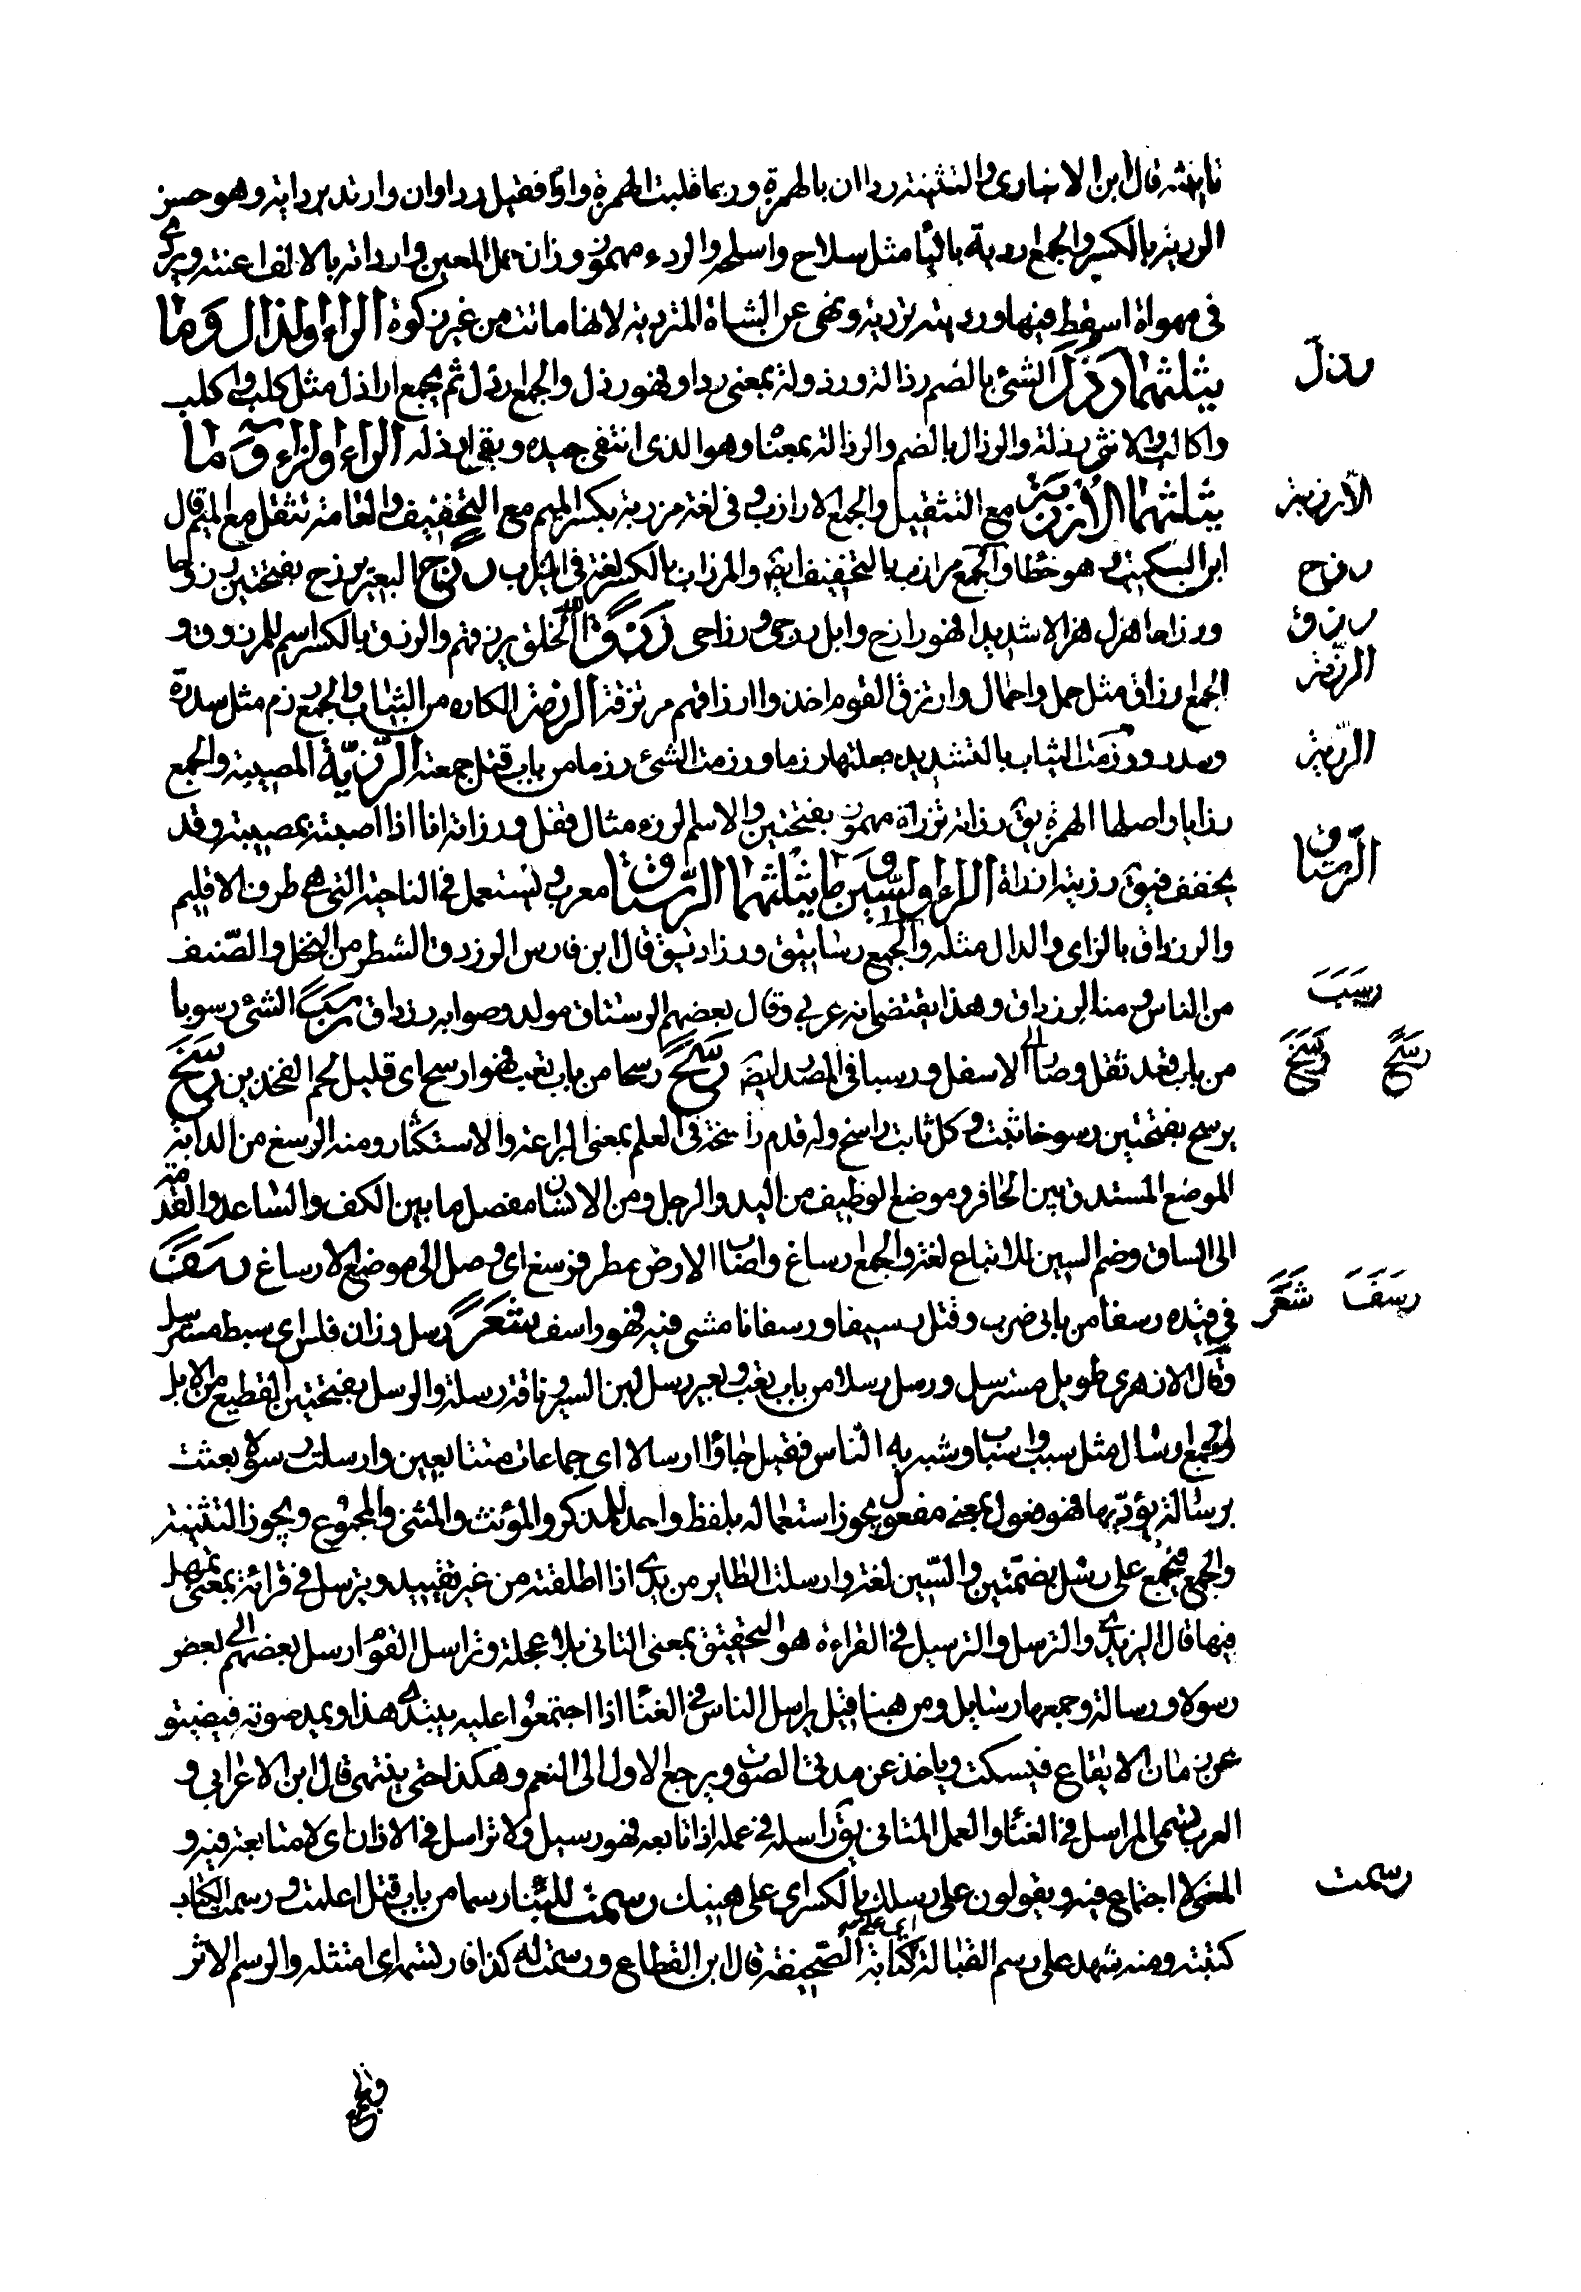 تانيثه قال ابن الانباري والتثنية رداان بالهمزة وربما قلبت الهمزة واوا فقيل رداوان وارتدى بردائه وهو حسن
الردية بالكسر والجمع اردية بالياء مثل سلاح واسلحة والردء مهموز وزان حمل المعين واردأته بالالف اعنته وتردى
في مهواة اسقط فيها ورديته تردية ونهى عن الشاة المتردية لانها ماتت من غير زكوة الراء والذال وما
يثلثهما رذل الشئ بالضم رذالة ورذولة بمعنى ردا وفهو رذل والجمع ارذل ثم يجمع اراذل مثل كلب واكلب
واكالب والانثى رذلة والرذال بالضم والرذالة بمعناه وهو الذى انتفى جيده وبقى ارذله الراء والزاء وما
يثلثهما الأرزبة مع التثقيل والجمع الارازب وفي لغة مرزبة بكسر الميم مع التخفيف والعامة تثقل مع الميم قال
ابن السكيت وهو خطا والجمع مرازب بالتخفيف ايضا والمرزاب بالكسر لغة في الميزاب رزح البعير يرزح بفتحتين رزوحا
ورزاحا هزل هزالا شديدا فهو رازح وابل رزحى ورزاحى رزق الله الخلق يرزقهم والرزق بالكسر اسم للمرزوق و
الجمع ارزاق مثل حمل واحمال وارتزق القوم اخذوا ارزاقهم مرتزقة الرزمة الكاره من الثياب والجمع رزم مثل سدرة
وسدر ورزمت الثياب بالتشديد جعلتها رزما ورزمت الشئ رزما من باب قتل جمعته الرزية المصيبة والجمع
رزايا واصلها الهمزة يق رزاته ترزاه مهموز بفتحتين والاسم الرزء مثال قفل ورزاته انا اذا اصبته بمصيبة وقد
يخفف فيق رزيته ارزاه الراء والسين وما يثلثهما الرستاق معرب ويستعمل في الناحية التي هي طرف الاقليم
والرزداق بالزاى والدال مثله والجمع رساتيق ورزاديق قال ابن فارس الرزدق الشطر من النخل والصنف
من الناس ومنه الرزداق وهذا يقتضى انه عربي وقال بعضهم الرستاق مولد وصوابه رزداق رسب الشئ رسوبا
من باب قعد ثقل وصار الى الاسفل ورسبا في المصدر ايضا رسح رسحا من باب تعب فهو ارسح اى قليل لحم الفخذين رسخ
يرسخ بفتحتين رسوخا ثبت وكل ثابت راسخ وله قدم راسخة في العلم بمعنى البراعة والاستكثار ومنه الرسغ من الدابة
الموضع المستدق بين الحافر وموضع الوظيف من اليد والرجل ومن الانسان مفصل ما بين الكف والساعد والقدم
الى الساق وضم السين للاتباع لغة والجمع ارساغ واصاب الارض مطر فرسغ اى وصل الى موضع الارساغ رسف
في قيده رسفا من بابى ضرب وقتل رسيفا ورسفانا مشى فيه فهو راسف شعر رسل وزان فلس اى سبط مسترسل
وقال الازهرى طويل مسترسل ورسل رسلا من باب تعب وبعير رسل لين السير وناقة رسلة والرسل بفتحتين القطيع من الابل
والجمع ارسال مثل سبب واسباب وشبه به الناس فقيل جاؤا ارسالا اى جماعات متتابعين وارسلت رسولا بعثت
برسالة يؤديها فهو فعول بمعنى مفعول يجوز استعماله بلفظ واحد للمذكر والمؤنث والمثنى والمجموع ويجوز التثنية
والجمع فيجمع على رسل بضمتين والسين لغة وارسلت الطاير من يدى اذا اطلقته من غير تقييد وترسل في قرائته بمعنى تمهل
فيها قال اليزيدى والترسل والترسيل في القراءة هو التحقيق بمعنى التانى بلا عجلة وتراسل القوم ارسل بعضهم الى بعض
رسولا ورسالة وجمعها رسايل ومن هنا قيل يراسل الناس في الغناء اذا اجتمعوا عليه يبتدى هذا ويمد صوته فيضيق
عن زمان الايقاع فيسكت وياخذ عن مدته الصوت ويرجع الاول الى النغم وهكذا حتى ينتهى قال ابن الاعرابي و
العرب تسمى المراسل في الغناء والعمل المتانى يق راسله في عمله اذا تابعه فهو رسيل ولا تراسل في الاذان اى لا متابعة فيه و
المعنى لا اجتماع فيه ويقولون على رسلك بالكسر اى على هينتك رسمت للبناء رسما من باب قتل اعلمت ورسمت الكتاب
كتبته ومنه شهد على رسم القبالة اى على كتابة الصحيفة قال ابن القطاع ورسمت له كذا فارتسمه اى امتثله والرسم الاثر
رذل
الأرزبة
رزح
رزق
الرزمة
الرزية
الرستاق
رسب
رسح رسخ
رسف شعر
رسمت
والجمع